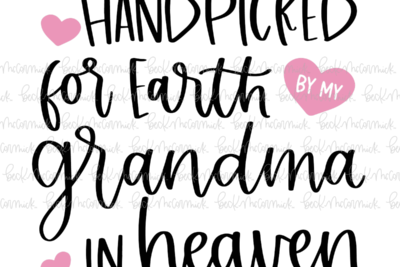 HANDPICKED
for Earth BY MY
grandma
IN heaven